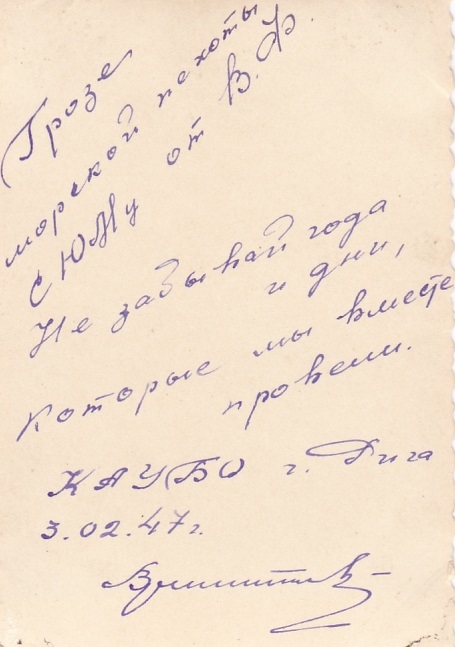 Грозе
морской пехоты
от В.Ф.
Не забывай года
и дни,
Которые мы вместе
провели.
КАУБО г. Рига
3.02.47г.